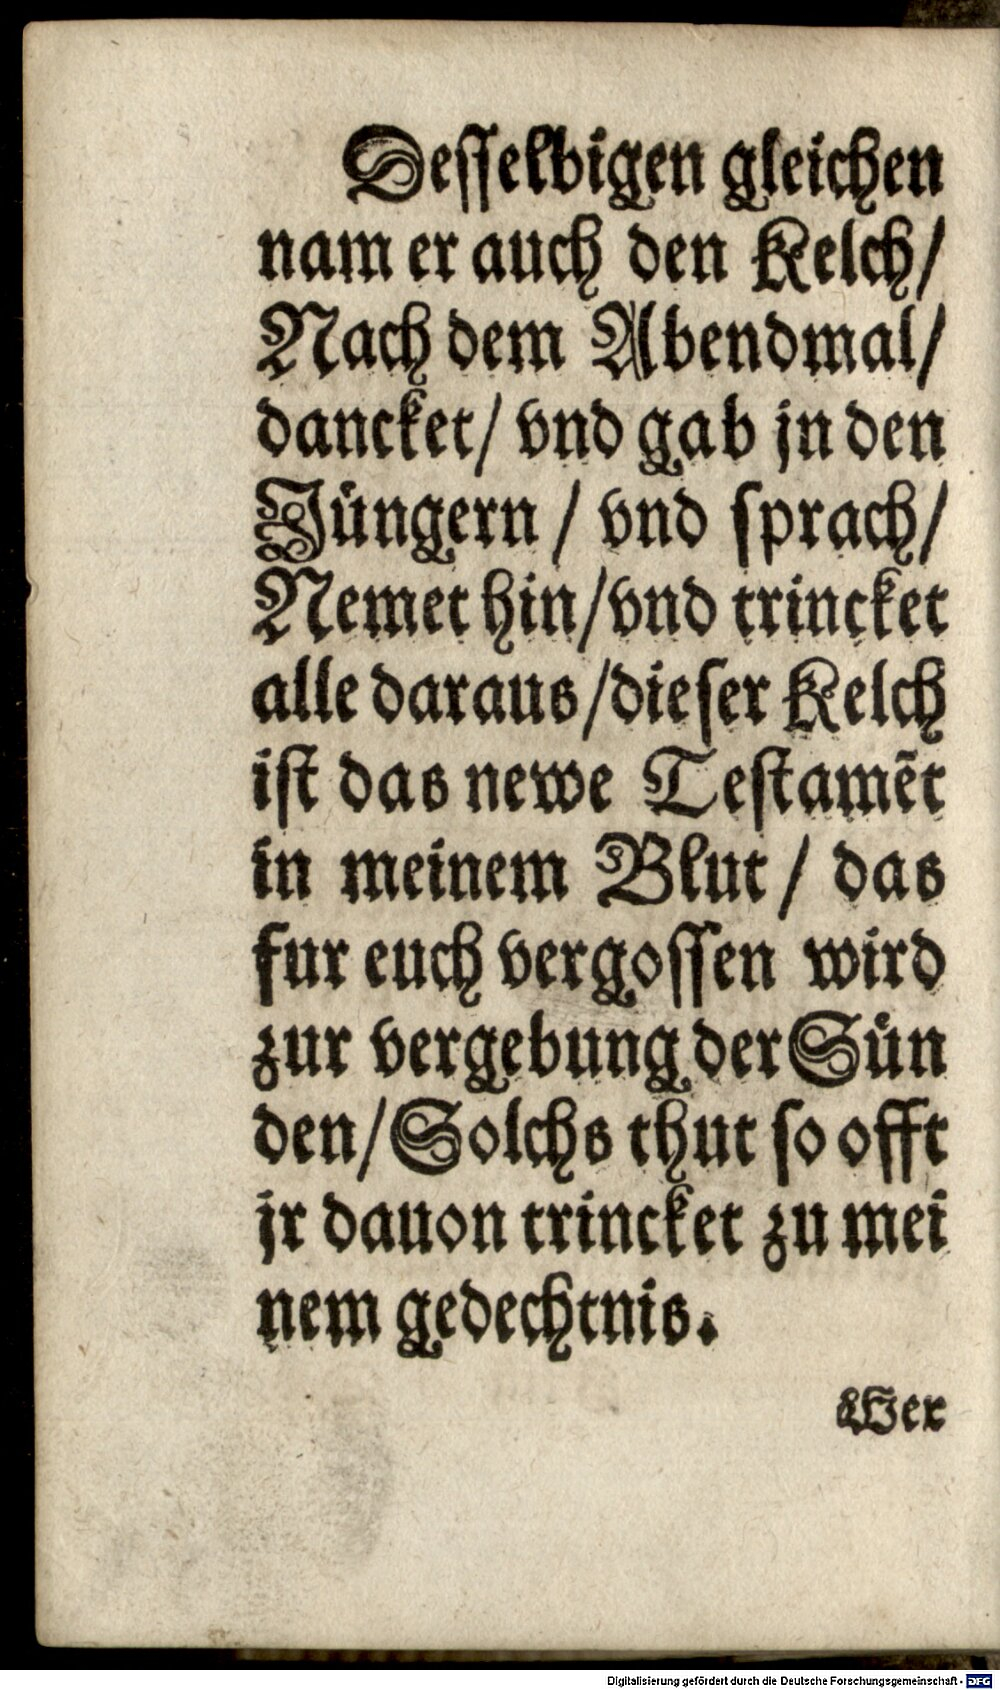 Desselbigen gleichen
nam er auch den Kelch/
Nach dem Abendmal/
dancket/ vnd gab jn den
Jüngern / vnd sprach/
Nemet hin/vnd trincket
alle daraus/dieser Kelch
ist das newe Testamēt
in meinem Blut/ das
fur euch vergossen wird
zur vergebung der Sün
den/Solchs thut so offt
jr dauon trincket zu mei
nem gedechtnis.
Wer
Digitalisierung gefördert durch die Deutsche Forschungsgemeinschaft - DFG